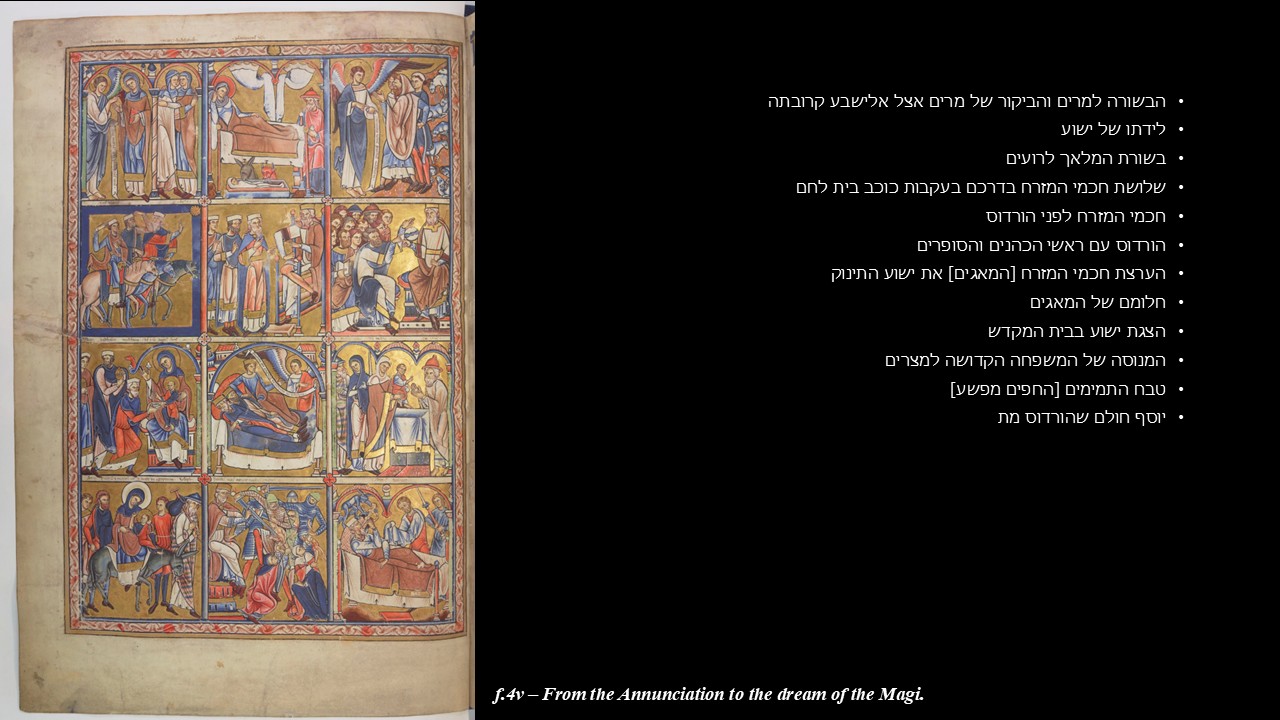 • הבשורה למרים והביקור של מרים אצל אלישבע קרובתה
• לידתו של ישוע
• בשורת המלאך לרועים
• שלושת חכמי המזרח בדרכם בעקבות כוכב בית לחם
• חכמי המזרח לפני הורדוס
• הורדוס עם ראשי הכהנים והסופרים
• הערצת חכמי המזרח [המאגים] את ישוע התינוק
• חלומם של המאגים
• הצגת ישוע בבית המקדש
• המנוסה של המשפחה הקדושה למצרים
• טבח התמימים [החפים מפשע]
• יוסף חולם שהורדוס מת
f.4v – From the Annunciation to the dream of the Magi.